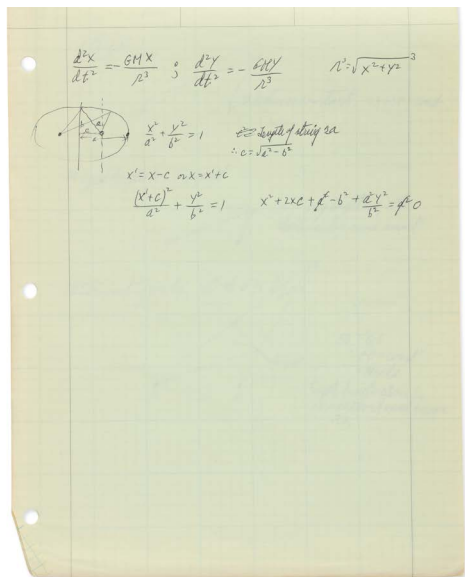 d²x/dt² = -GMX/r³ ; d²y/dt² = -GMY/r³   r³ = √(x²+y²)³
x²/a² + y²/b² = 1   length of string 2a
∴ c = √(a²-b²)
x' = x-c or x = x'+c
(x'+c)²/a² + y²/b² = 1   x² + 2xc + a² - b² + a²y²/b² = a² 0